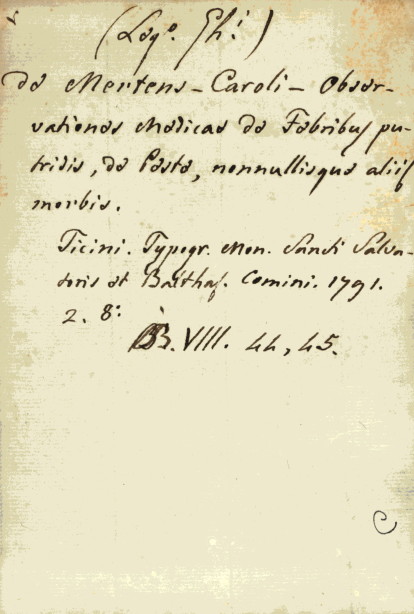 (Legº. Ghi.)
De Mertens - Caroli - Obser-
vationes Medicae de Febribus pu-
tridis, de Peste, nonnullisque aliis
morbis.
Ticini. Typogr. Mon. Sancti Salva-
toris et Balthas. Comini. 1791.
2. 8º.
B. VIII. 44, 45.
C